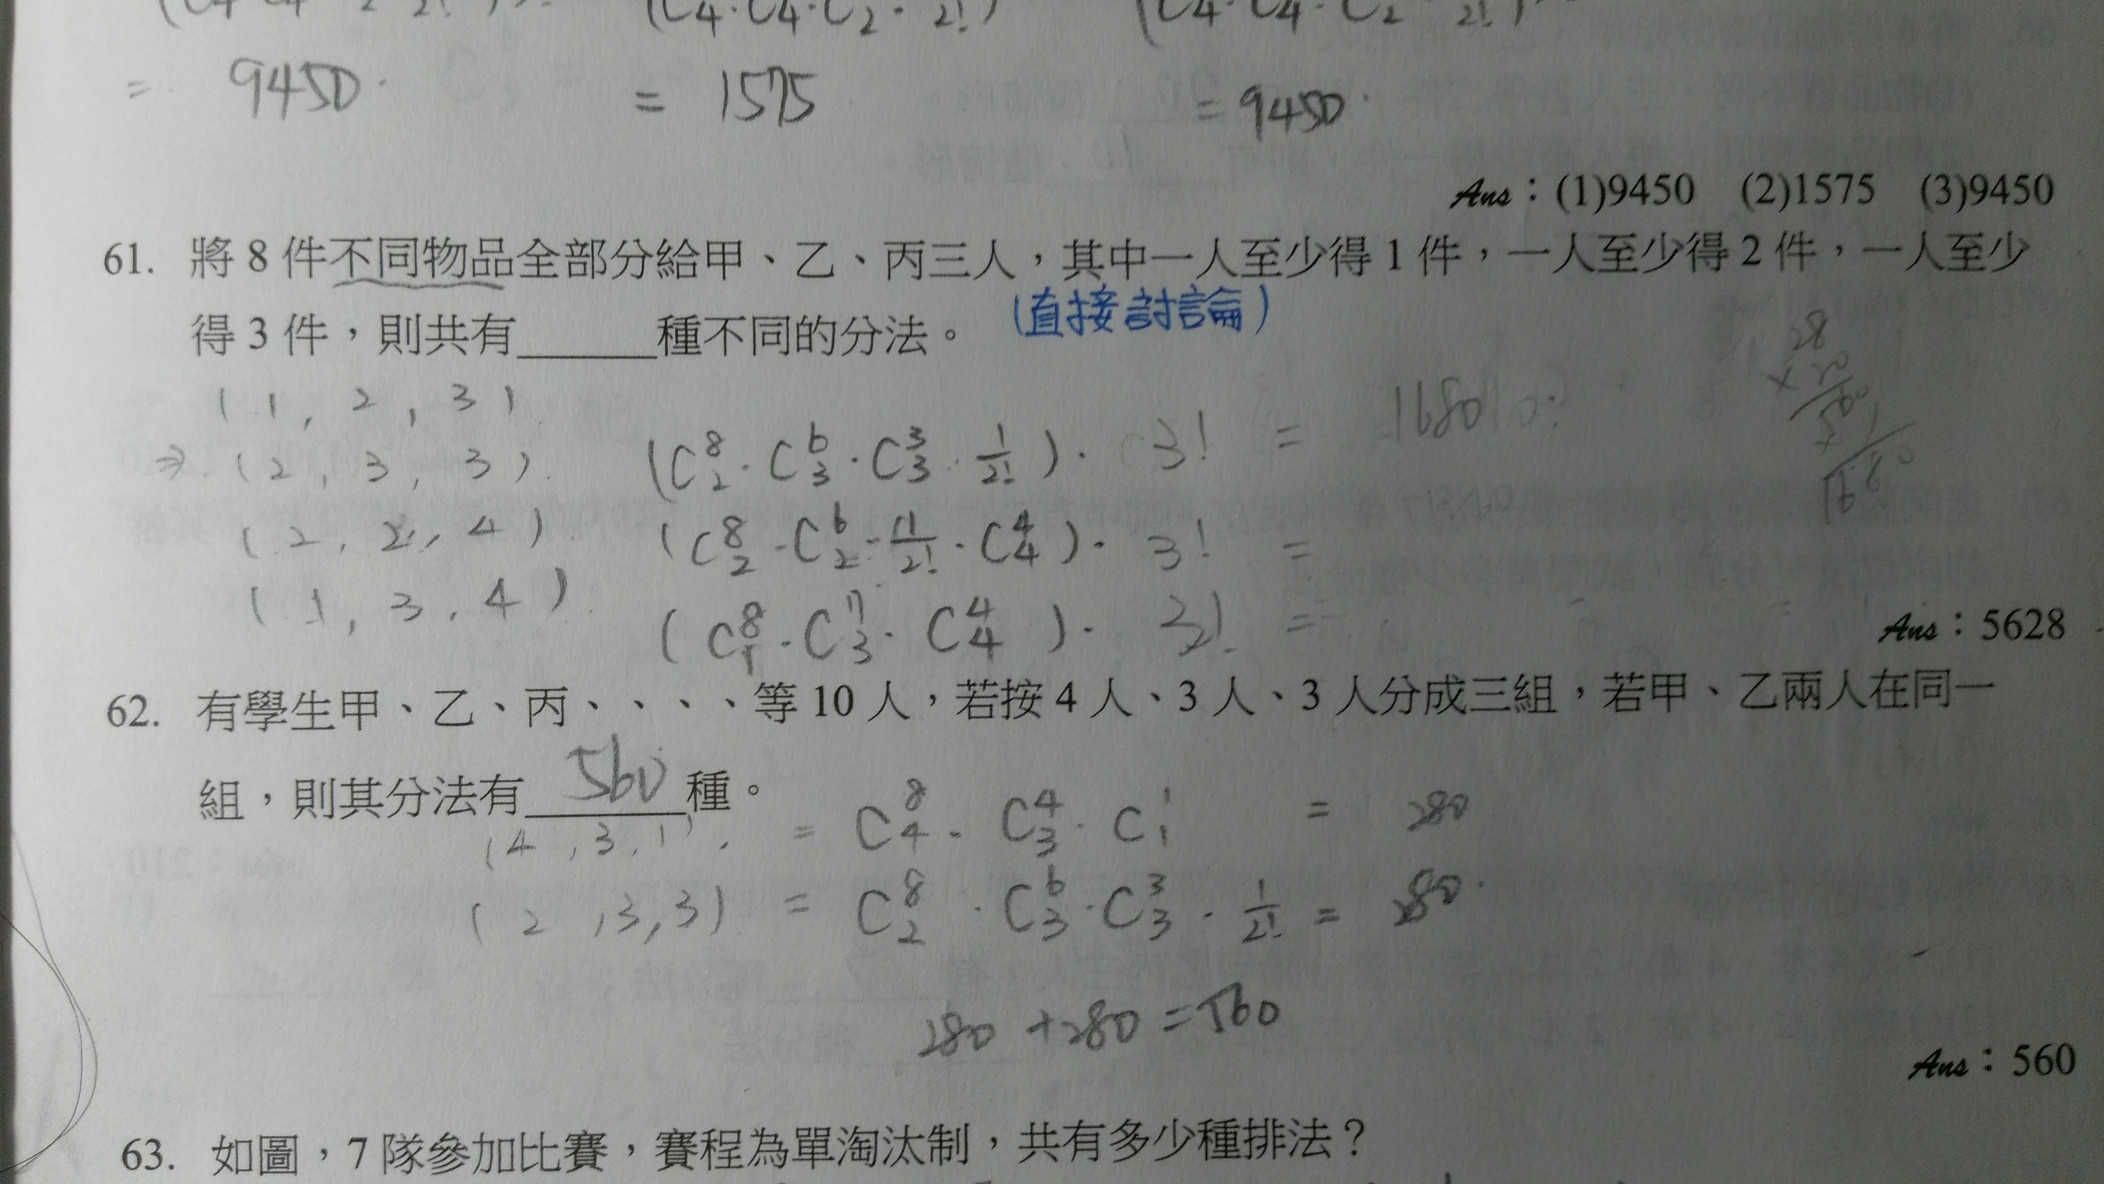 = 9450 = 1575 = 9450
Ans：(1)9450 (2)1575 (3)9450
61. 將 8 件不同物品全部分給甲、乙、丙三人，其中一人至少得 1 件，一人至少得 2 件，一人至少
得 3 件，則共有______種不同的分法。 (直接討論)
(1, 2, 3)
⇒ (2, 3, 3). (C⁸₂·C⁶₃·C³₃·1/2!)·3! = 1680
(2, 2, 4) (C⁸₂·C⁶₂·1/2!·C⁴₄)·3! =
(1, 3, 4) (C⁸₁·C⁷₃·C⁴₄)·3! =
28
560
1680
Ans：5628
62. 有學生甲、乙、丙、、、、等 10 人，若按 4 人、3 人、3 人分成三組，若甲、乙兩人在同一
組，則其分法有 560 種。
(4, 3, 1) = C⁸₄·C⁴₃·C¹₁ = 280
(2, 3, 3) = C⁸₂·C⁶₃·C³₃·1/2! = 280
280 + 280 = 560
Ans：560
63. 如圖，7 隊參加比賽，賽程為單淘汰制，共有多少種排法？